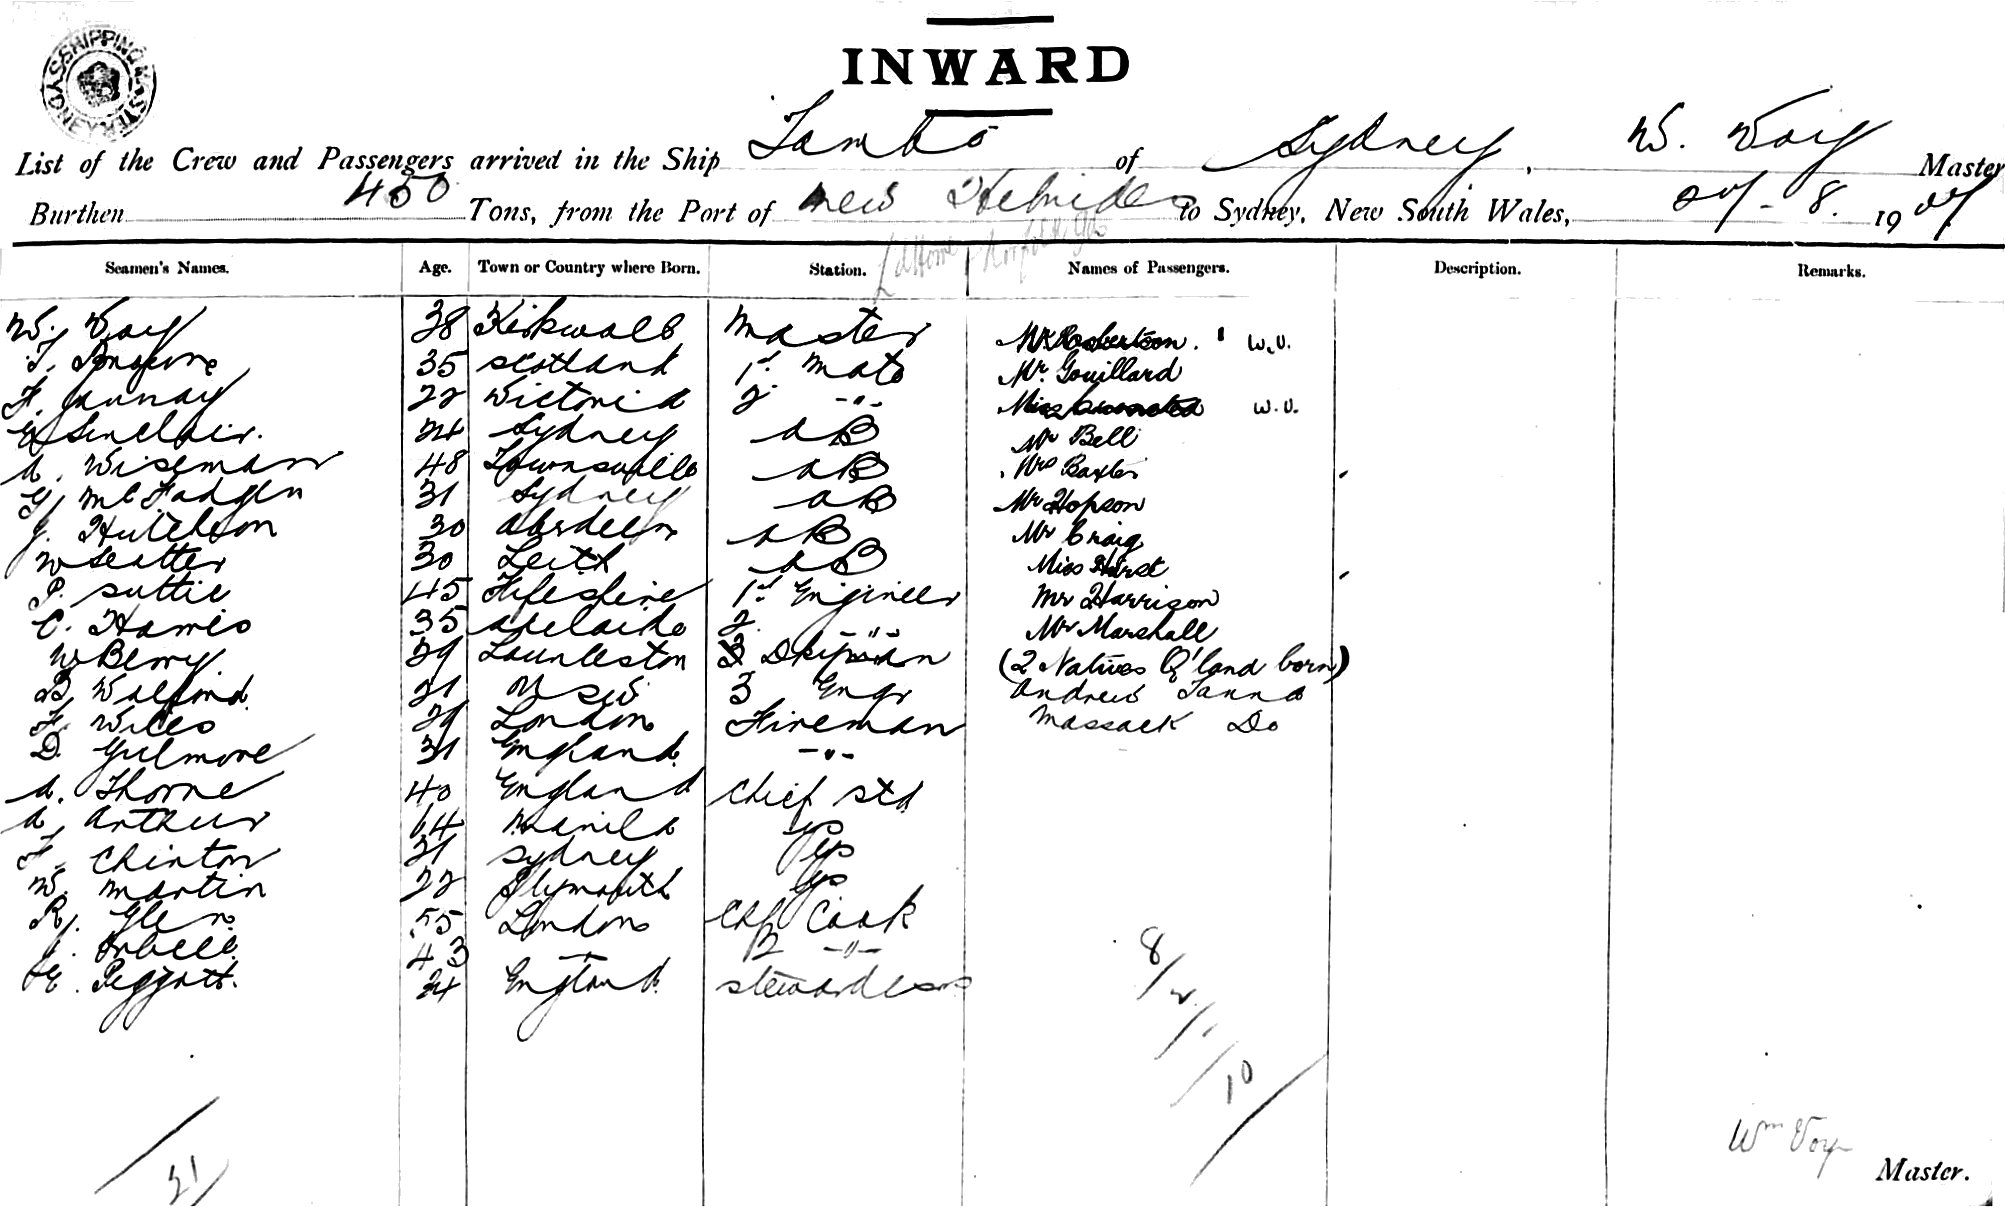 SYDNEY SHIPPING MASTER
INWARD
List of the Crew and Passengers arrived in the Ship Tambo of Sydney, W. Voy Master
Burthen 450 Tons, from the Port of New Hebrides to Sydney, New South Wales, 8. 1907
Ld Howe Norfolk Ids
Seamen's Names. Age. Town or Country where Born. Station. Names of Passengers. Description. Remarks.
W. Voy 38 Kirkwall Master Mr Robertson. W.V.
T. 35 Scotland 1st Mate Mr. Gouillard
F. Jannay 22 Victoria 2 -"- Miss W.V.
Sinclair. 24 Sydney AB Mr Bell
A. Wiseman 48 Townsville AB Mrs Baxter
G. McFadgen 31 Sydney AB Mr Hopson
J. Hutchson 30 Aberdeen AB Mr Craig
W Seatter 30 Leith AB Miss Hurst
P. Suttie 45 Fifeshire 1st Engineer Mr Harrison
C. Harris 35 Adelaide 2 -"- Mr Marshall
W Berry 29 Launceston Dkyman (2 Natives Q'land born)
B. 21 NSW 3 Engr Andrew Tanna
F. Wiles 29 London Fireman Massack Do
D. Gilmore 31 England. -"-
A. Thorne 40 England Chief Std
A. Arthur 64 Manila GS
F. Chinton 21 Sydney GS
W. Martin 22 Plymouth GS
R. Glen 55 London Chf Cook
43 -"- 2 -"-
E. Peggott. 24 England. Stewardess
8/2/
10
21
Wm Voy
Master.